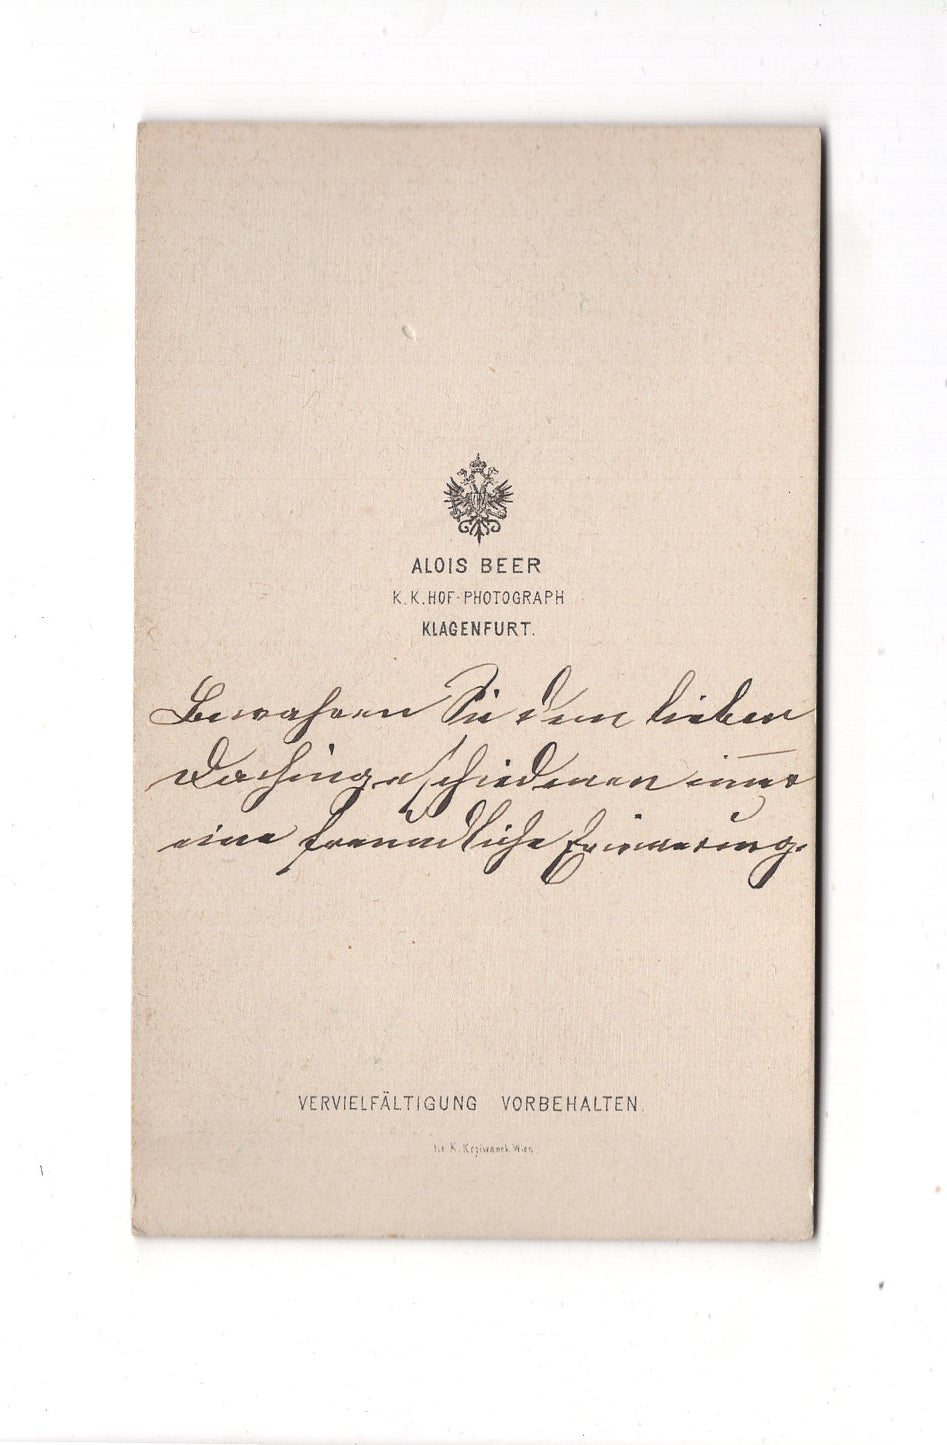 ALOIS BEER
K. K. HOF-PHOTOGRAPH
KLAGENFURT.
Bewahren Sie dem lieben
Dahingeschiedenen immer
eine freundliche Erinnerung.
VERVIELFÄLTIGUNG VORBEHALTEN.
lit. K. Krziwanek Wien.